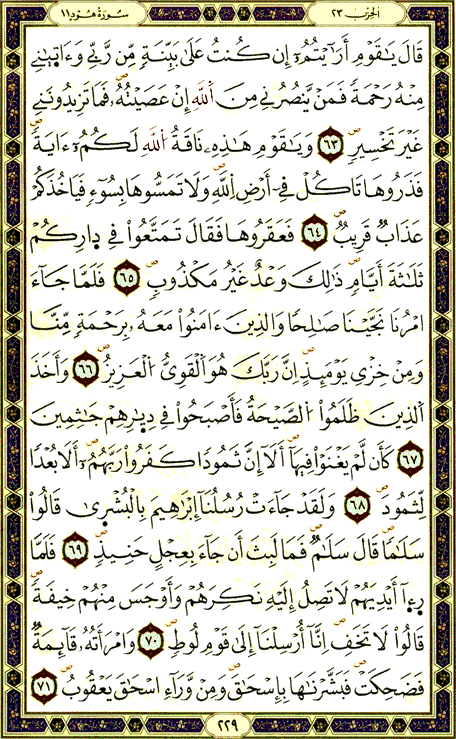 الحزب ٢٣
سورة هود ١١
قَالَ يَٰقَوْمِ أَرَٰٓيْتُمُۥٓ إِن كُنتُ عَلَىٰ بَيِّنَةٍ مِّن رَّبِّے وَءَاتَىٰنِے
مِنْهُ رَحْمَةً فَمَنْ يَّنصُرُنِے مِنَ اَ۬للَّهِ إِنْ عَصَيْتُهُۥ فَمَا تَزِيدُونَنِے
غَيْرَ تَخْسِيرٍ ٦٣ وَيَٰقَوْمِ هَٰذِهِۦ نَاقَةُ اُ۬للَّهِ لَكُمُۥٓ ءَايَةً
فَذَرُوهَا تَاكُلْ فِےٓ أَرْضِ اِ۬للَّهِ وَلَا تَمَسُّوهَا بِسُوٓءٍ فَيَاخُذَكُمْ
عَذَابٌ قَرِيبٌ ٦٤ فَعَقَرُوهَا فَقَالَ تَمَتَّعُوا۟ فِے دِارِكُمْ
ثَلَٰثَةَ أَيَّامٍ ذَٰلِكَ وَعْدٌ غَيْرُ مَكْذُوبٍ ٦٥ فَلَمَّا جَآءَ
امْرُنَا نَجَّيْنَا صَٰلِحًا وَالذِينَ ءَامَنُوا۟ مَعَهُۥ بِرَحْمَةٍ مِّنَّا
وَمِنْ خِزْىِ يَوْمَئِذٍ اِنَّ رَبَّكَ هُوَ اَ۬لْقَوِىُّ اُ۬لْعَزِيزُ ٦٦ وَأَخَذَ
اَ۬لذِينَ ظَلَمُوا۟ اُ۬لصَّيْحَةُ فَأَصْبَحُوا۟ فِے دِيٰ۪رِهِمْ جَٰثِمِينَ
٦٧ كَأَن لَّمْ يَغْنَوْا۟ فِيهَآ أَلَآ إِنَّ ثَمُودًا كَفَرُوا۟ رَبَّهُمُۥٓ أَلَا بُعْدًا
لِّثَمُودَ ٦٨ وَلَقَدْ جَآءَتْ رُسُلُنَآ إِبْرَٰهِيمَ بِالْبُشْر۪يٰ قَالُوا۟
سَلَٰمًا قَالَ سَلَٰمٌ فَمَا لَبِثَ أَن جَآءَ بِعِجْلٍ حَنِيذٍ ٦٩ فَلَمَّا
ر۪ء۪آ أَيْدِيَهُمْ لَا تَصِلُ إِلَيْهِ نَكِرَهُمْ وَأَوْجَسَ مِنْهُمْ خِيفَةً
قَالُوا۟ لَا تَخَفِ اِنَّآ أُرْسِلْنَآ إِلَىٰ قَوْمِ لُوطٍ ٧٠ وَامْرَأَتُهُۥ قَآئِمَةٌ
فَضَحِكَتْ فَبَشَّرْنَٰهَا بِإِسْحَٰقَ وَمِنْ وَّرَآءِ اِسْحَٰقَ يَعْقُوبُ ٧١
٢٢٩